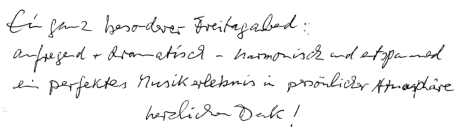 Ein ganz besonderer Freitagabed:
aufregend + dramatisch - harmonisch und etspanned
ein perfektes Musikerlebnis in persönlicher Atmosphäre
herzlichen Dank!